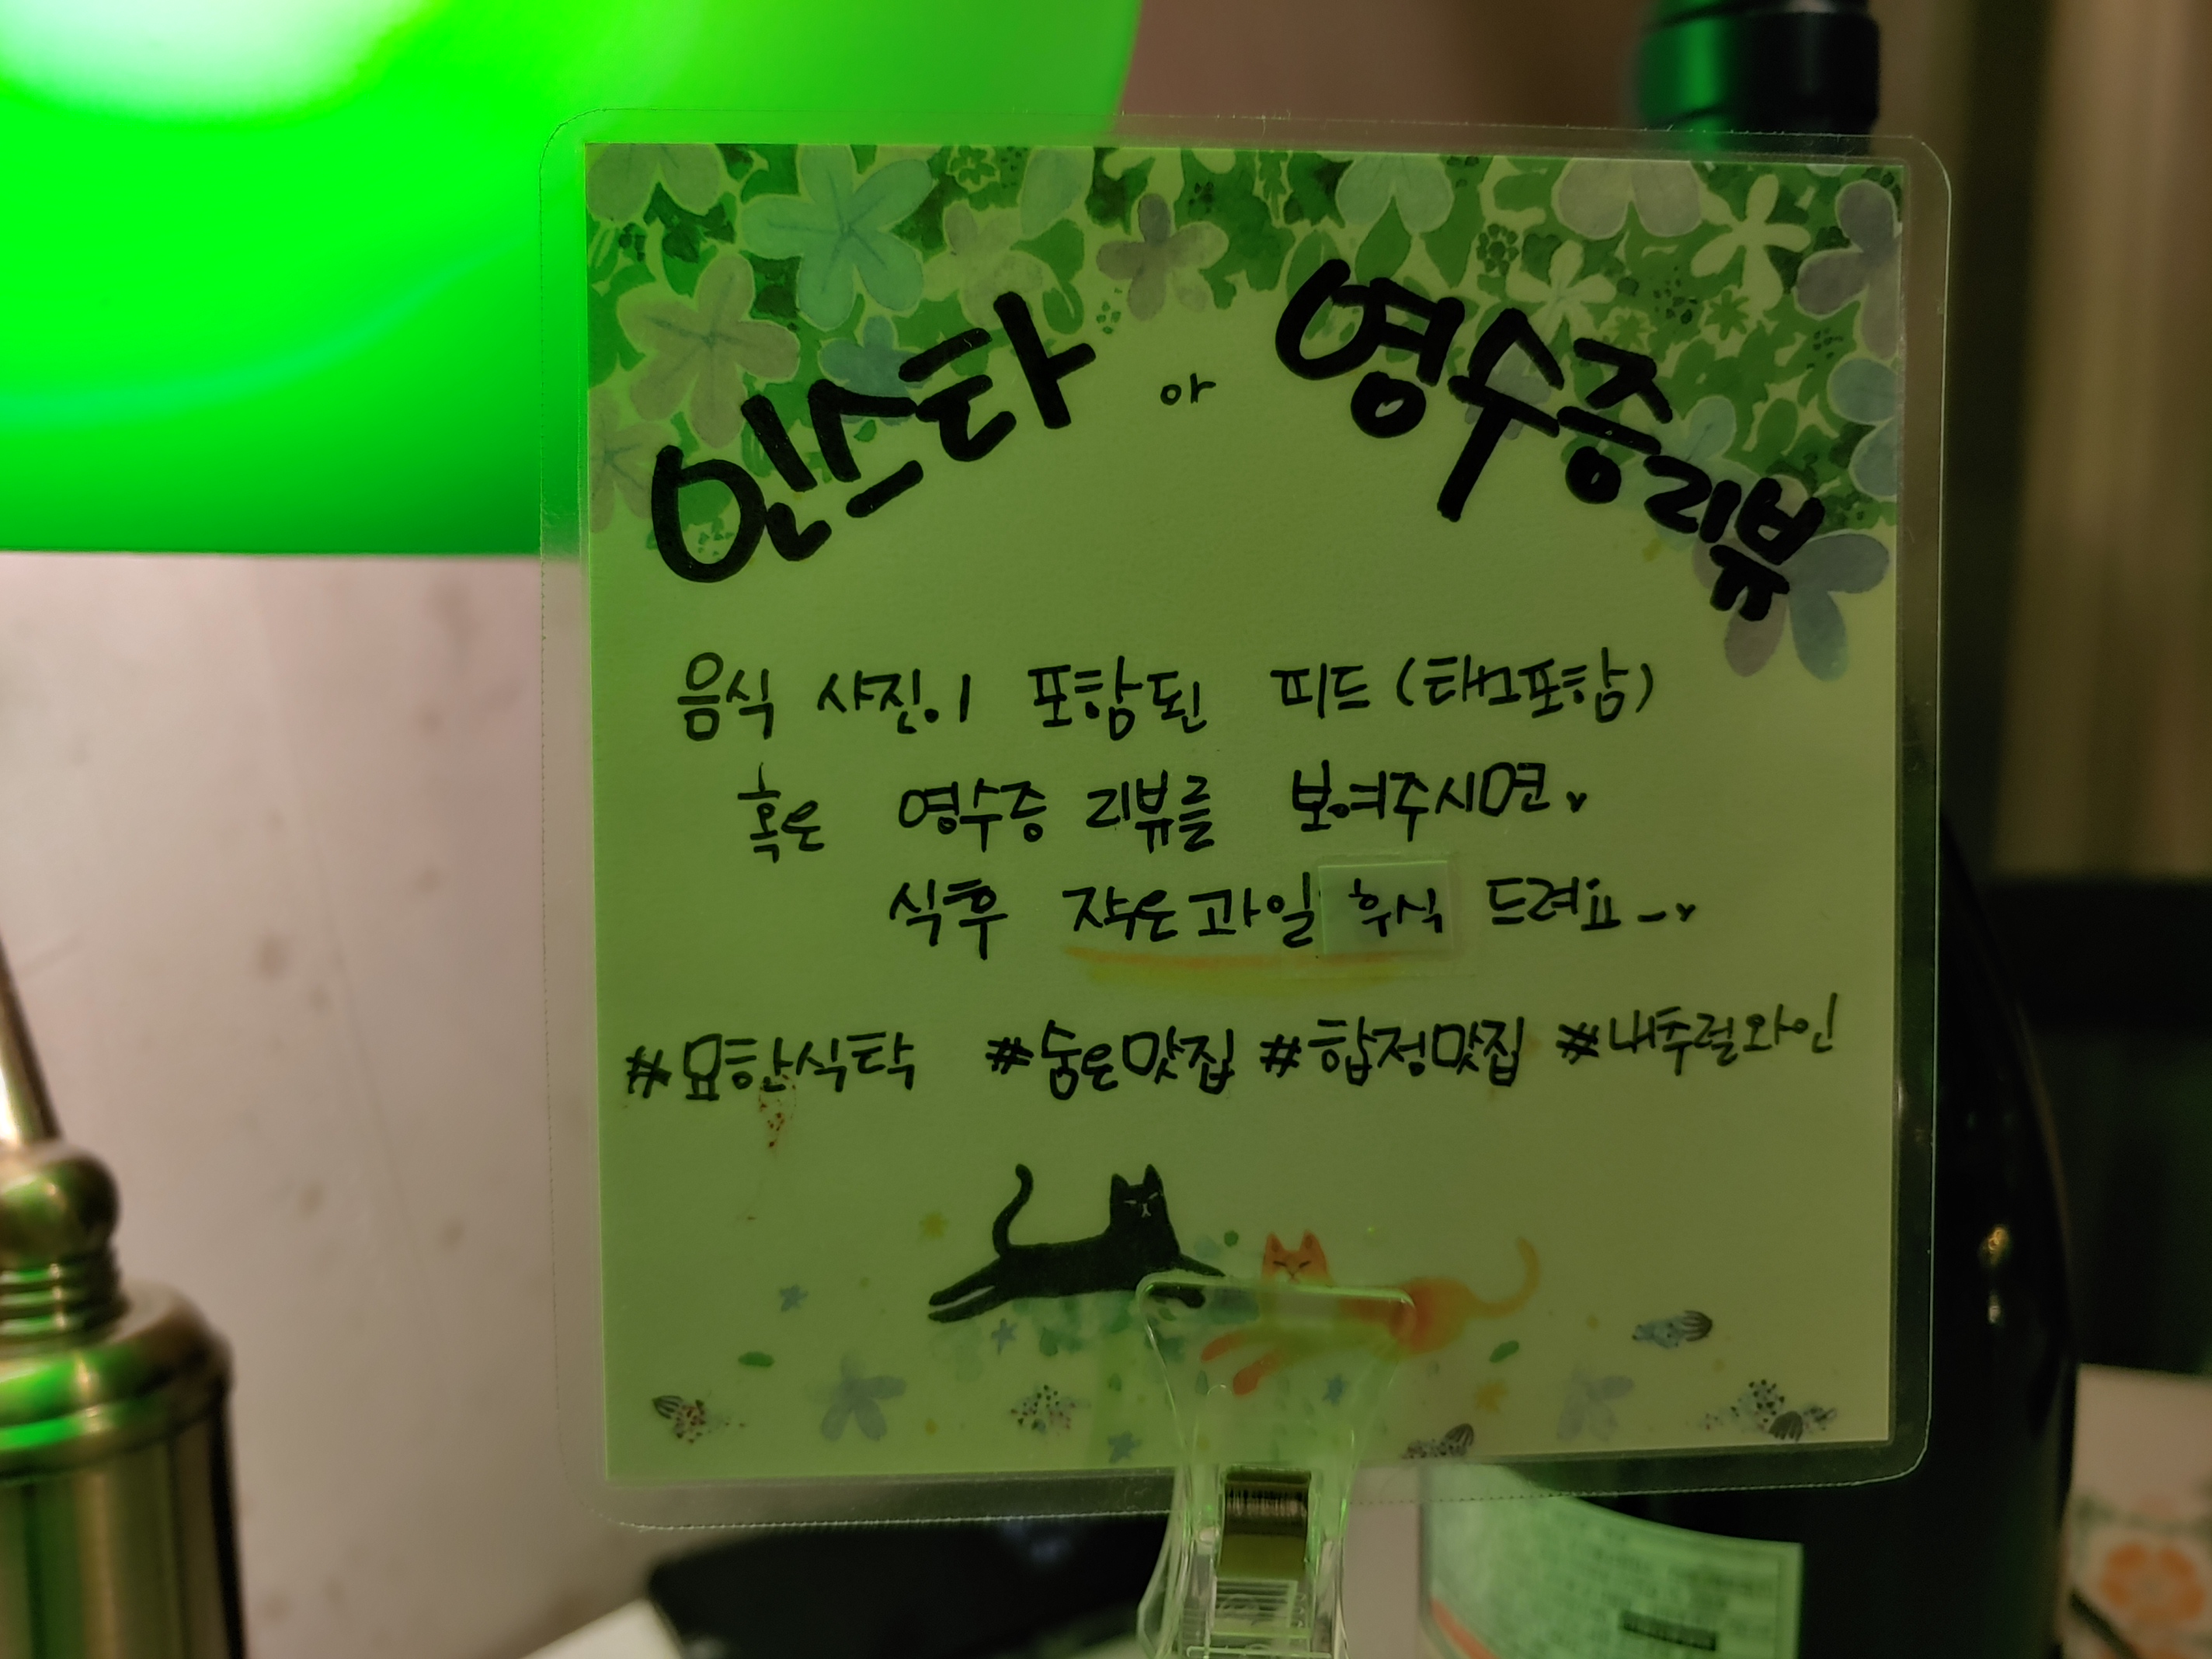 인스타 or 영수증리뷰
음식 사진이 포함된 피드 (태그포함)
혹은 영수증 리뷰를 보여주시면
식후 작은과일 후식 드려요~
#묘한식탁 #숨은맛집 #합정맛집 #내추럴와인